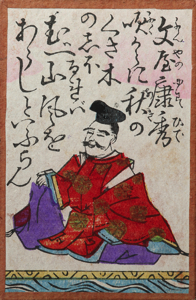 文屋康秀
ふんやのやすひで
吹からに秋の
くさ木
のしほ
るれば
むべ山風を
あらしといふらん